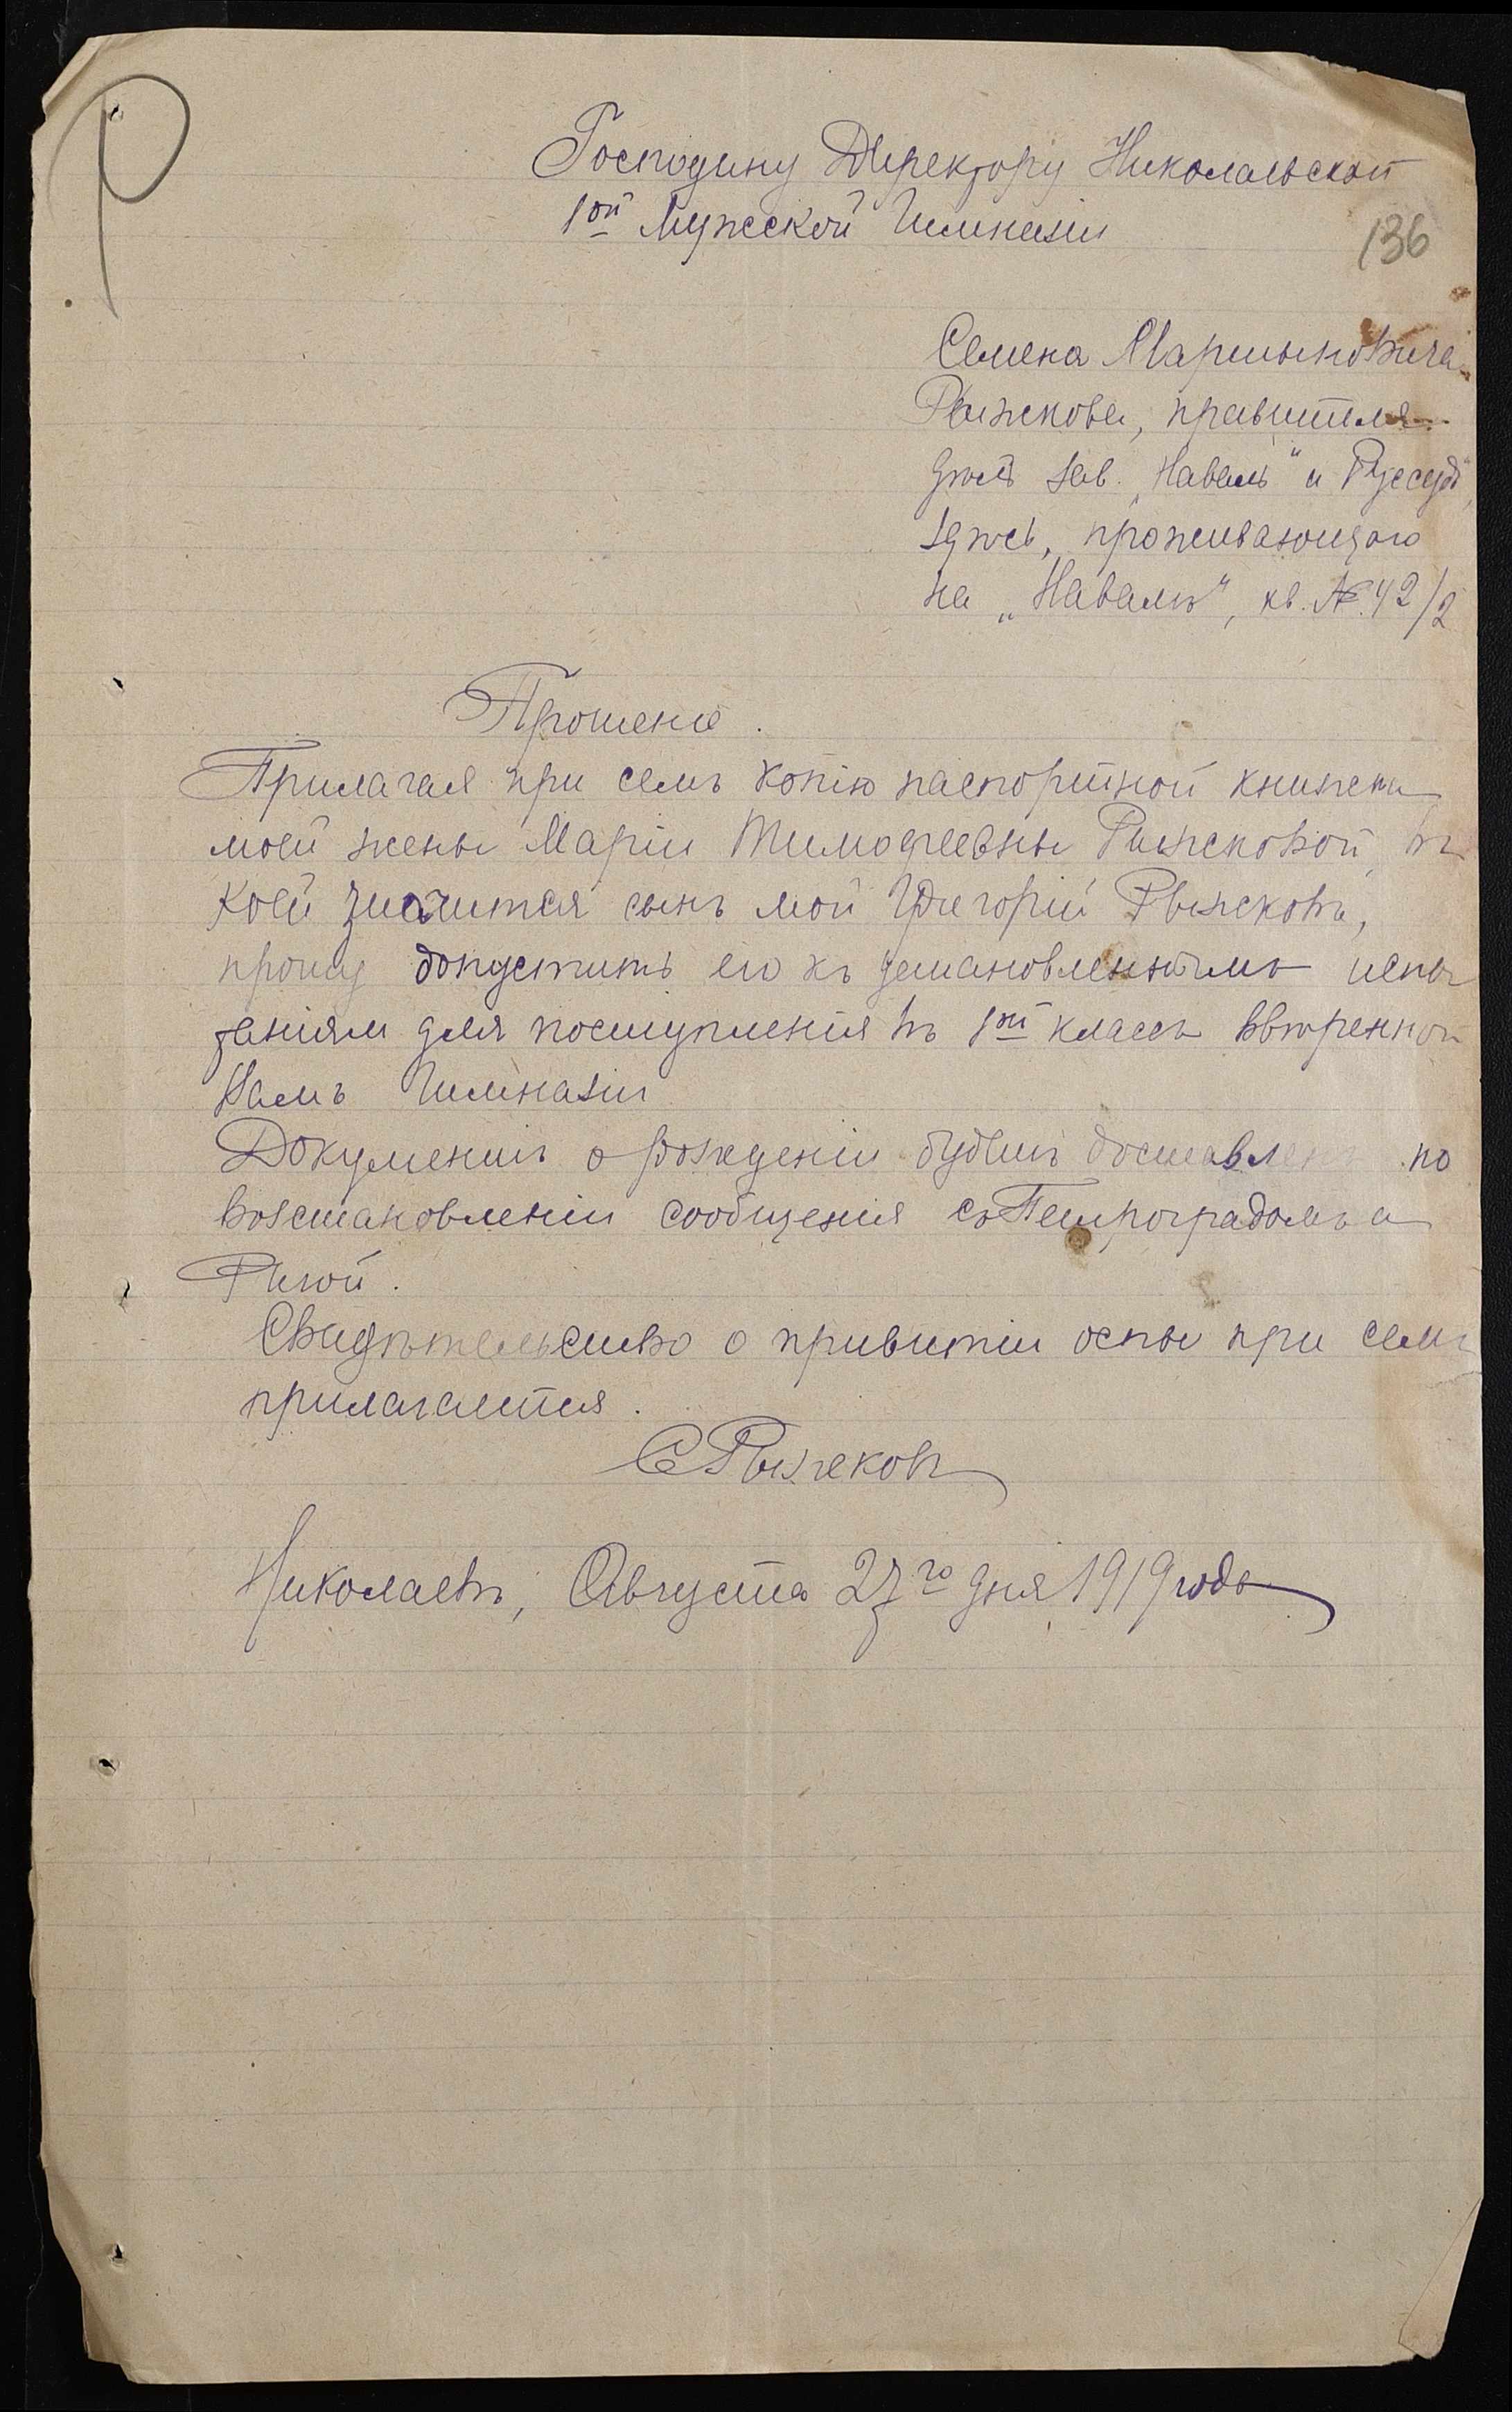 Р
Господину Директору Николаевской
1ой Мужской Гимназіи
136
Семена Мартыновича
Рыжкова, правителя
дѣлъ зав. „Наваль" и Руссудъ,
здѣсь, проживающаго
на „Навалѣ", кв. № 42/2
Прошеніе.
Прилагая при семъ копію паспортной книжки
моей жены Маріи Тимофеевны Рыжсковой, въ
коей значится сынъ мой Григорій Рыжсковъ,
прошу допустить его къ установленнымъ испы
таніямъ для поступленія въ 1ый классъ ввѣренной
Вамъ Гимназіи
Документъ о рожденіи будетъ доставленъ по
возстановленіи сообщенія съ Петроградомъ и
Ригой.
Свидѣтельство о привитіи оспы при семъ
прилагается.
С Рыжковъ
Николаевъ, Августа 27го дня 1919 года